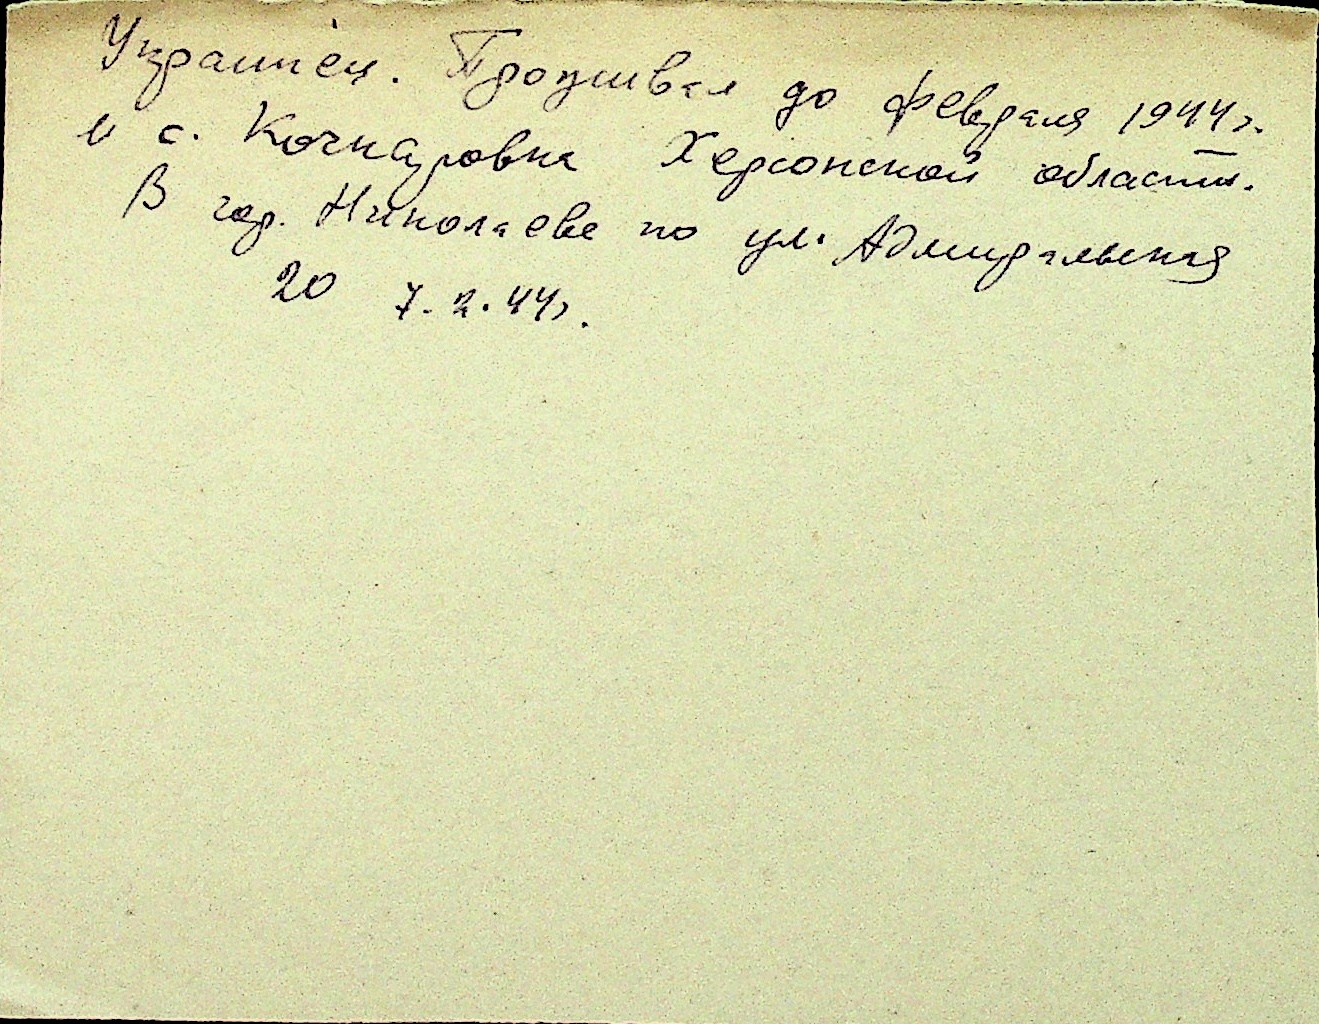 Украинец. Проживал до февраля 1944 г.
с. Херсонской области.
В гор. Николаеве по ул. Адмиральская
20 7.2.44 г.